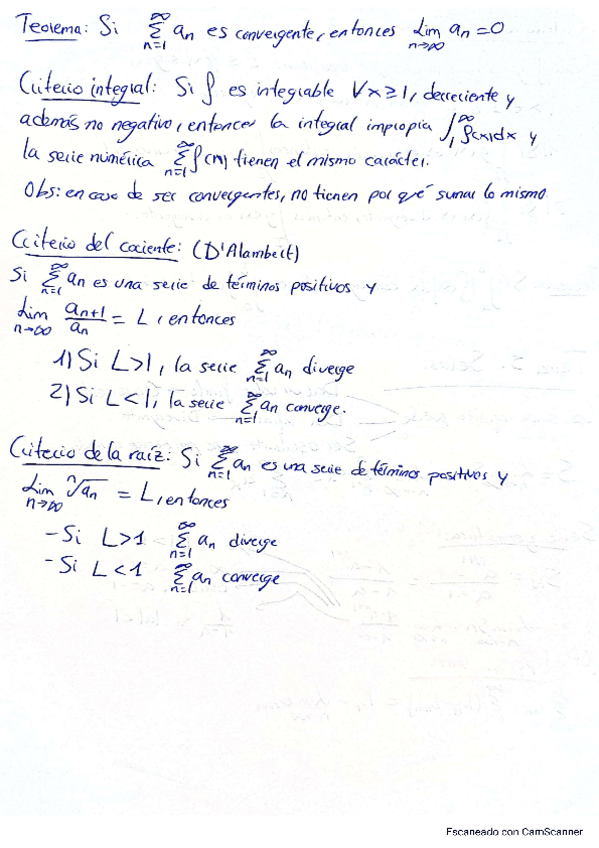 Teorema: Si ∑_{n=1}^{∞} aₙ es convergente, entonces Lim_{n→∞} aₙ = 0
Criterio integral: Si f es integrable ∀x≥1, decreciente y
además no negativo, entonces la integral impropia ∫_1^∞ f(x)dx y
la serie numérica ∑_{n=1}^{∞} f(n) tienen el mismo carácter.
Obs: en caso de ser convergentes, no tienen por qué sumar lo mismo.
Criterio del cociente: (D'Alambert)
Si ∑_{n=1}^{∞} aₙ es una serie de términos positivos y
Lim_{n→∞} aₙ₊₁/aₙ = L, entonces
1) Si L>1, la serie ∑_{n=1}^{∞} aₙ diverge
2) Si L<1, la serie ∑_{n=1}^{∞} aₙ converge.
Criterio de la raíz: Si ∑_{n=1}^{∞} aₙ es una serie de términos positivos y
Lim_{n→∞} ⁿ√aₙ = L, entonces
- Si L>1 ∑_{n=1}^{∞} aₙ diverge
- Si L<1 ∑_{n=1}^{∞} aₙ converge
Escaneado con CamScanner